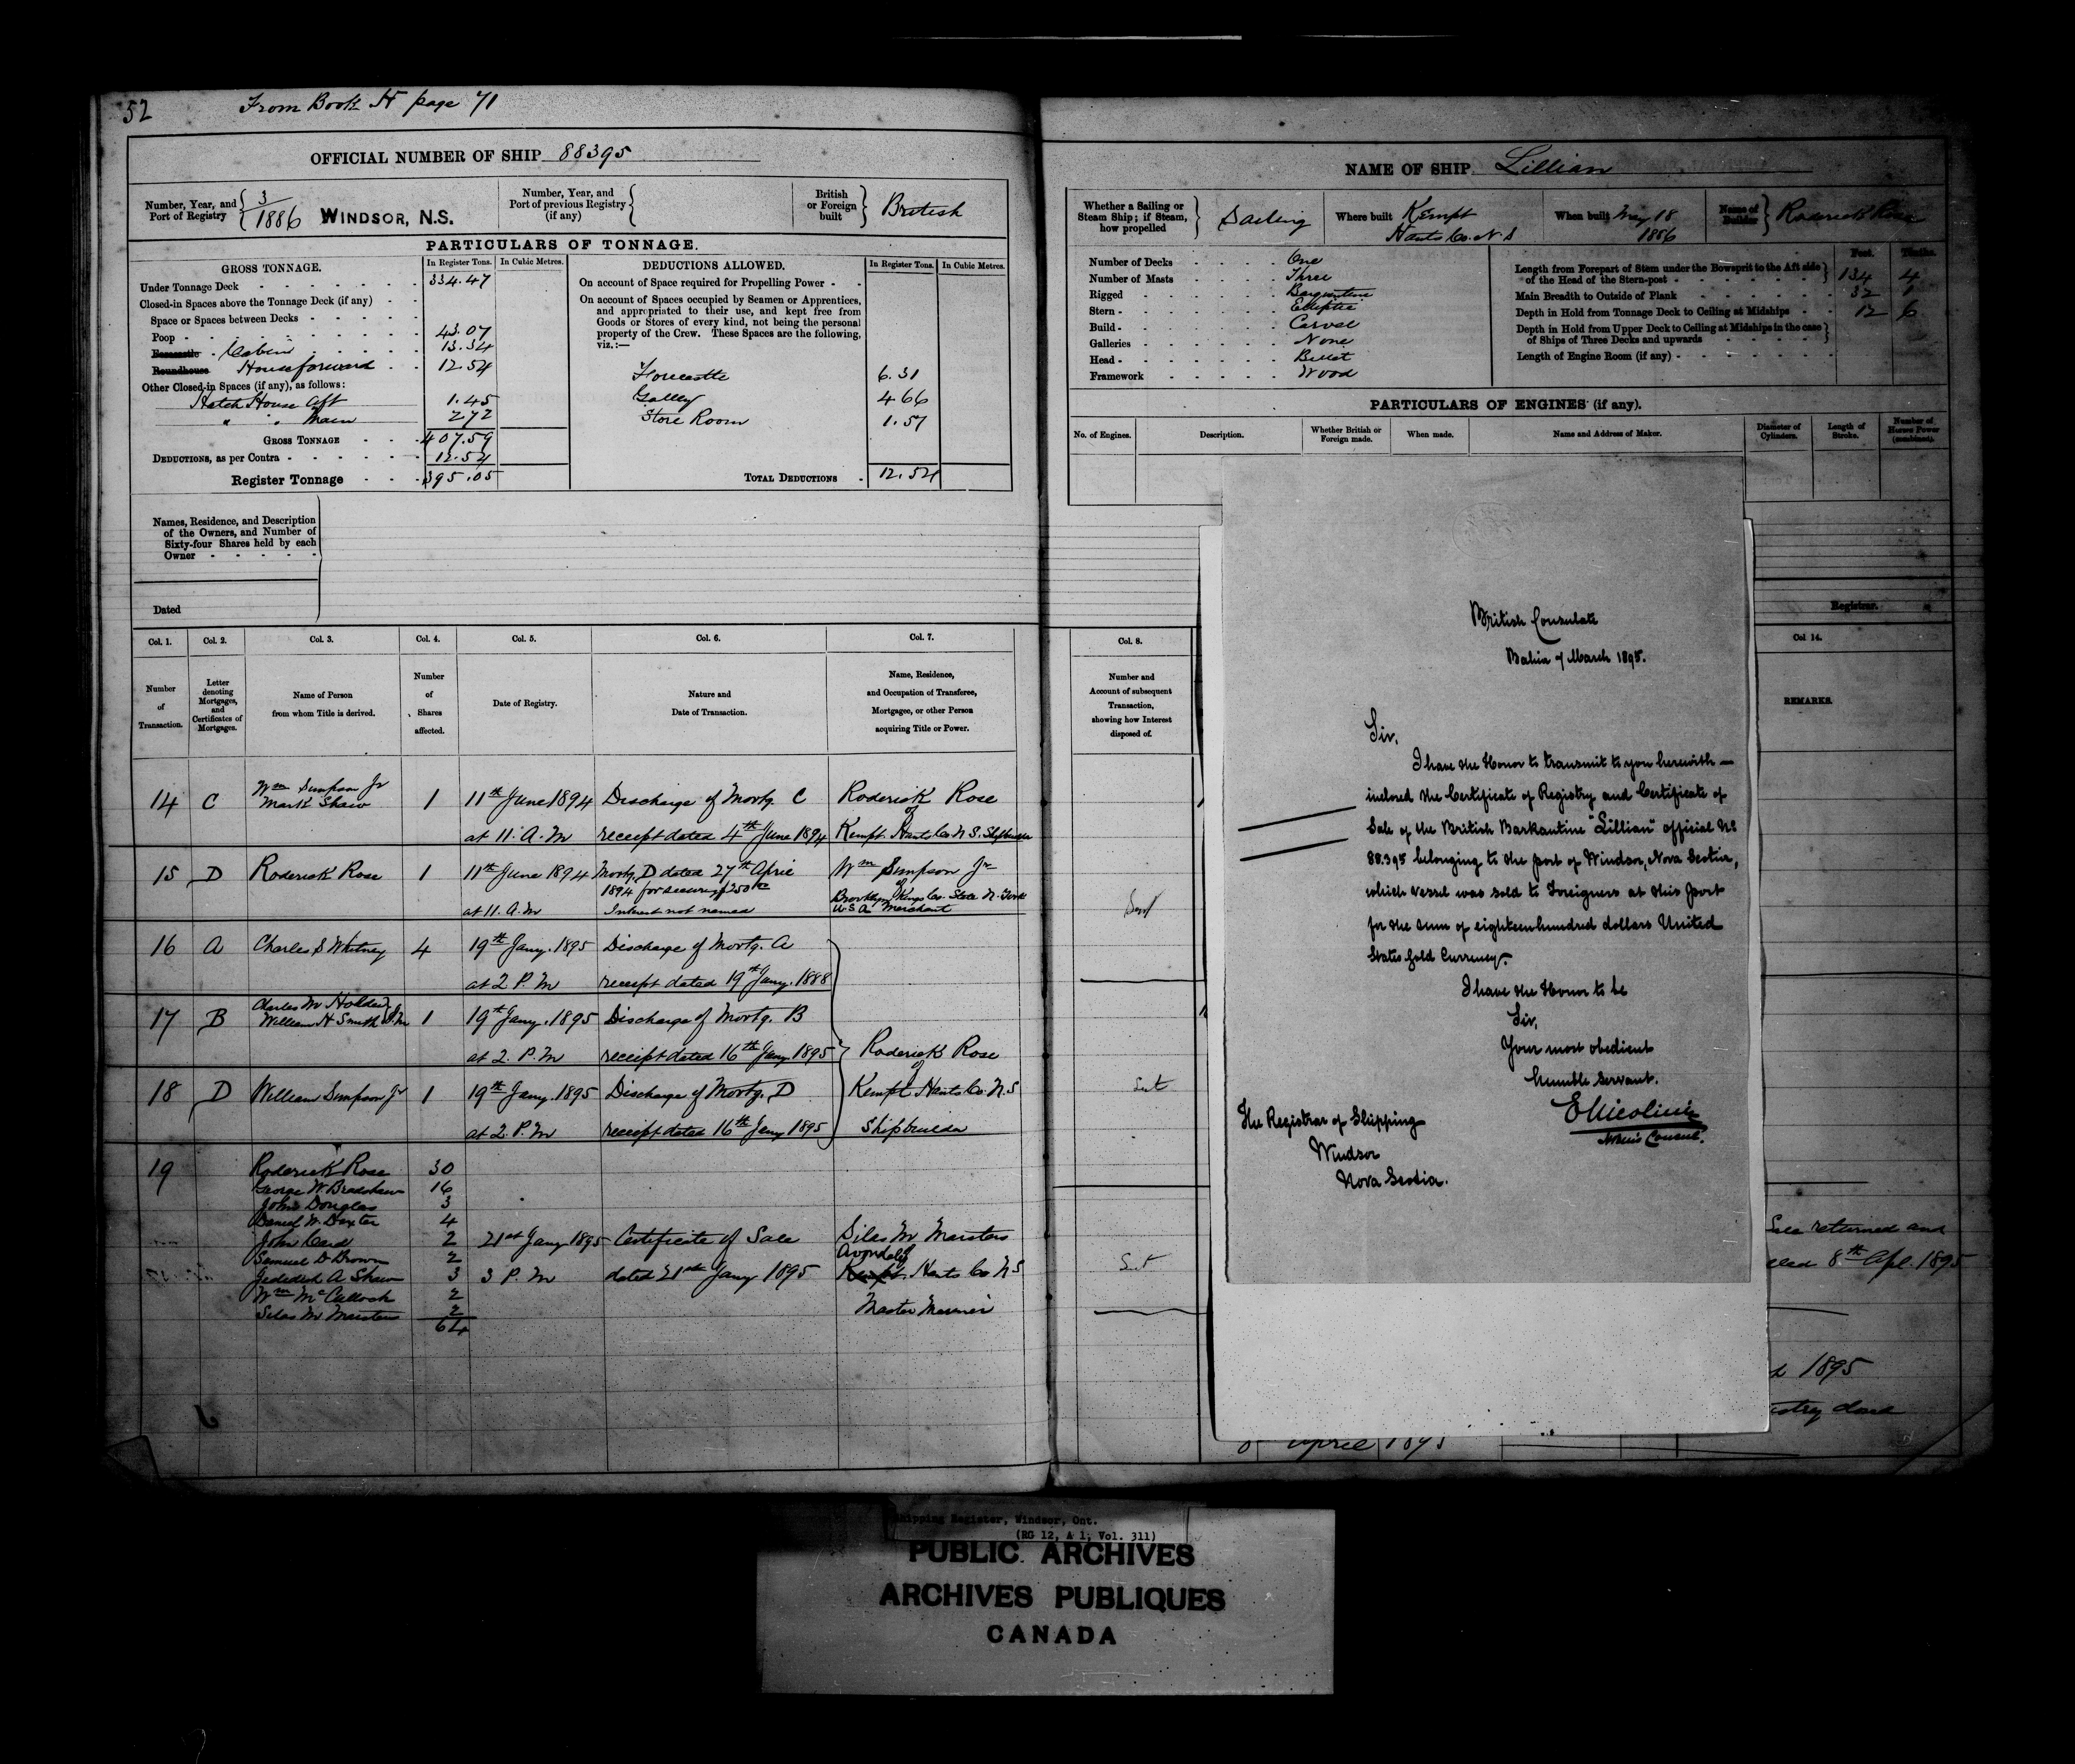 52
From Book H page 71
OFFICIAL NUMBER OF SHIP 88395
Number, Year, and Port of Registry 3/1886 WINDSOR, N.S.
Number, Year, and Port of previous Registry (if any)
British or Foreign built British
PARTICULARS OF TONNAGE.
GROSS TONNAGE. In Register Tons. In Cubic Metres.
Under Tonnage Deck 334.47
Closed-in Spaces above the Tonnage Deck (if any)
Space or Spaces between Decks
Poop 43.07
Forecastle Cabin 13.34
Roundhouse House forward 12.54
Other Closed-in Spaces (if any), as follows:
Hatch House Aft 1.45
" " Main 2 72
GROSS TONNAGE 407.59
DEDUCTIONS, as per Contra 12.54
Register Tonnage 395.05
DEDUCTIONS ALLOWED. In Register Tons. In Cubic Metres.
On account of Space required for Propelling Power
On account of Spaces occupied by Seamen or Apprentices,
and appropriated to their use, and kept free from
Goods or Stores of every kind, not being the personal
property of the Crew. These Spaces are the following,
viz.:—
Forecastle 6.31
Galley 4 66
Store Room 1.57
TOTAL DEDUCTIONS 12.54
Names, Residence, and Description
of the Owners, and Number of
Sixty-four Shares held by each
Owner
Dated
Col. 1. Col. 2. Col. 3. Col. 4. Col. 5. Col. 6. Col. 7.
Number of Transaction.
Letter denoting Mortgages, and Certificates of Mortgages.
Name of Person from whom Title is derived.
Number of Shares affected.
Date of Registry.
Nature and Date of Transaction.
Name, Residence, and Occupation of Transferee, Mortgagee, or other Person acquiring Title or Power.
14 C Wm Simpson Jr
Mark Shaw 1 11th June 1894 Discharge of Mortg. C Roderick Rose
of
at 11. A.M receipt dated 4th June 1894 Kempt Hants Co N.S. Shipbuilder
15 D Roderick Rose 1 11th June 1894 Mortg. D dated 27th April Wm Simpson Jr
1894 for securing $250 of
at 11. A.M Interest not named Brooklyn Kings Co. State N. York
U.S.A Merchant
16 A Charles S Whitney 4 19th Jany. 1895 Discharge of Mortg. A
at 2 P.M receipt dated 19th Jany. 1888
17 B Charles M Holder
William H Smith 1 19th Jany. 1895 Discharge of Mortg. B
at 2. P.M receipt dated 16th Jany. 1895 Roderick Rose
of
18 D William Simpson Jr 1 19th Jany. 1895 Discharge of Mortg. D Kempt Hants Co. N.S
at 2. P.M receipt dated 16th Jany 1895 Shipbuilder
19 Roderick Rose 30
George W Bradshaw 16
John Douglas 3
Daniel W. Dexter 4
John Card 2 21st Jany 1895 Certificate of Sale Silas M Marsters
Samuel D Brown 2 Avondale
Jedediah A Shaw 3 3 P.M dated 21st Jany 1895 Kempt Hants Co NS
Wm McCulloch 2
Silas M Marsters 2 Master Mariner
64
NAME OF SHIP Lillian
Whether a Sailing or Steam Ship; if Steam, how propelled Sailing
Where built Kempt
Hants Co. N.S
When built May 18
1886
Name of Builder Roderick Rose
Number of Decks One
Number of Masts Three
Rigged Barquentine
Stern Elliptic
Build Carvel
Galleries None
Head Billet
Framework Wood
Feet. Tenths.
Length from Forepart of Stem under the Bowsprit to the Aft side
of the Head of the Stern-post 134 4
Main Breadth to Outside of Plank 32 1
Depth in Hold from Tonnage Deck to Ceiling at Midships 12 6
Depth in Hold from Upper Deck to Ceiling at Midships in the case
of Ships of Three Decks and upwards
Length of Engine Room (if any)
PARTICULARS OF ENGINES (if any).
No. of Engines. Description. Whether British or Foreign made. When made. Name and Address of Maker. Diameter of Cylinders. Length of Stroke. Number of Horses Power (combined).
Registrar.
Col. 8.
Number and
Account of subsequent
Transaction,
showing how Interest
disposed of.
Col 14.
REMARKS.
British Consulate
Bahia 7 March 1895.
Sir,
I have the Honor to transmit to you herewith —
inclosed the Certificate of Registry and Certificate of
Sale of the British Barkantine "Lillian" official No
88.395 belonging to the port of Windsor, Nova Scotia,
which vessel was sold to Foreigners at this port
for the sum of eighteen hundred dollars United
States Gold Currency.
I have the Honor to be
Sir,
Your most obedient
humble servant.
The Registrar of Shipping
Windsor
Nova Scotia.
Consul.
Sale returned and
8th Apl. 1895
1895
April 1895
Shipping Register, Windsor, Ont.
(RG 12, A 1, Vol. 311)
PUBLIC ARCHIVES
ARCHIVES PUBLIQUES
CANADA